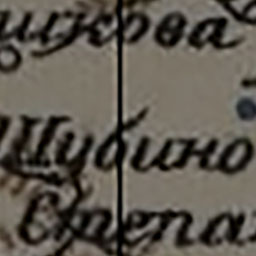 шкова
Шубино
Степа